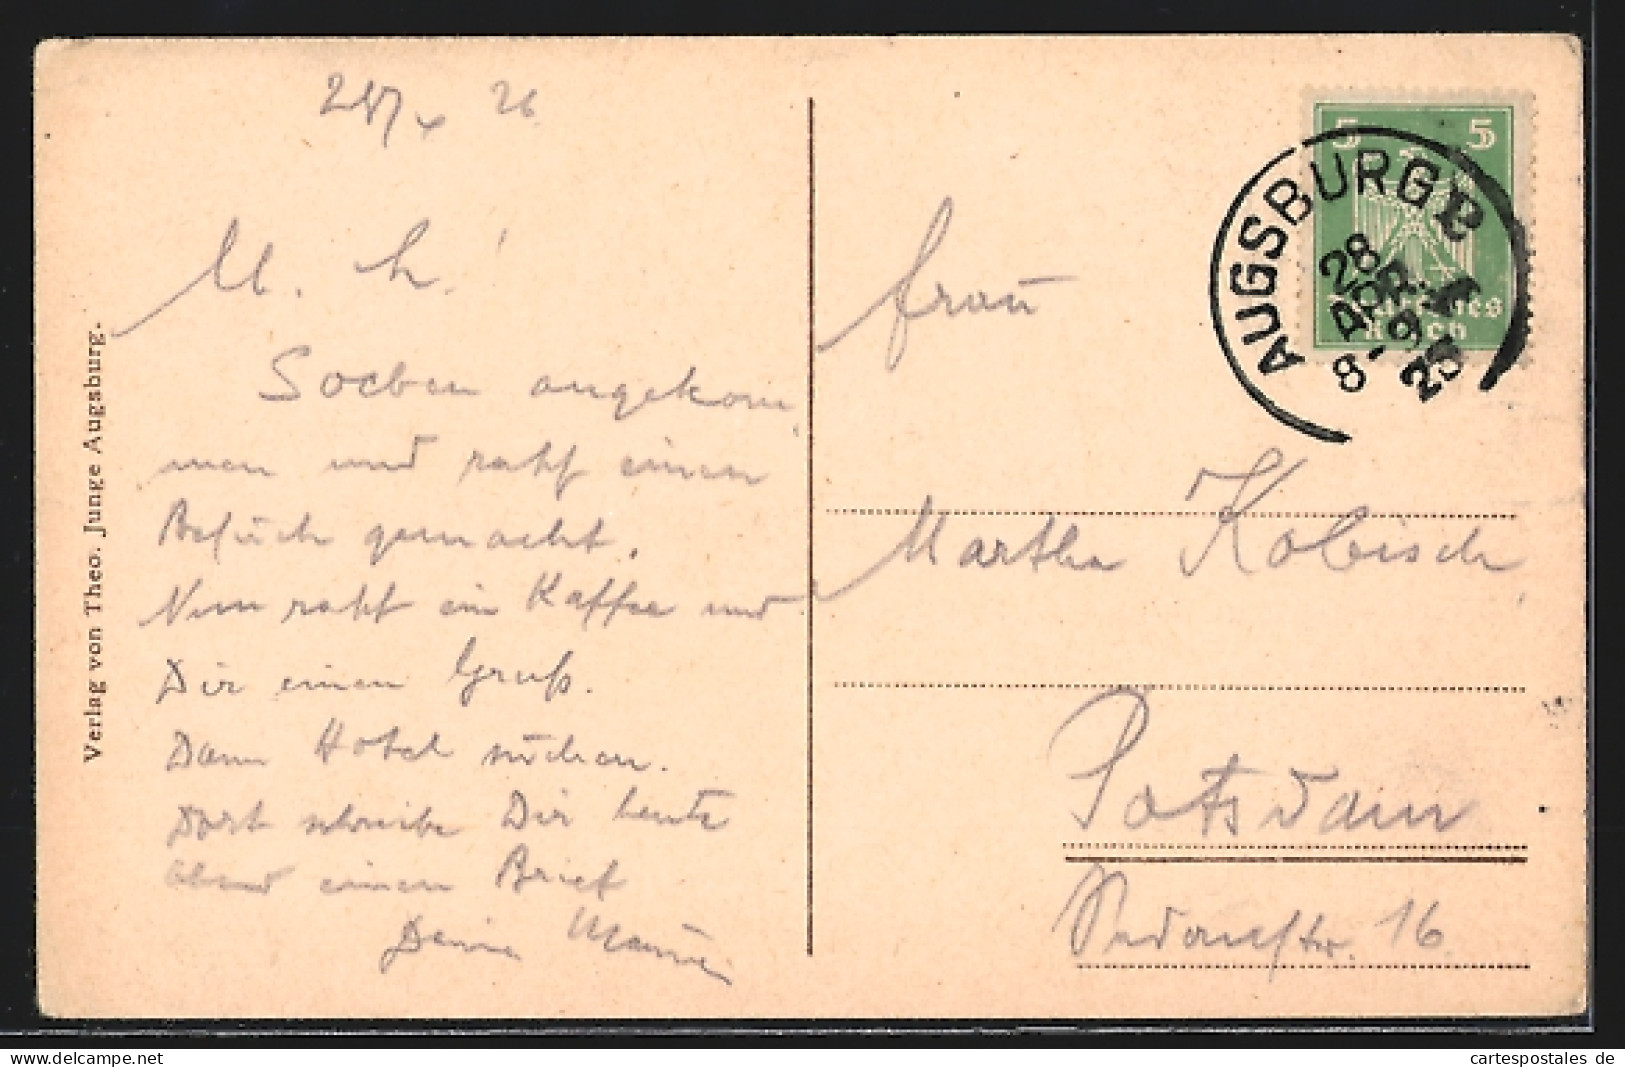 26
M. L.!
Soeben angekom
men und rasch einen
Besuch gemacht.
Nun rasch ein Kaffee und
Dir einen Gruß.
Dann Hotel suchen.
Dort schreibe Dir heute
abend einen Brief
Deine
Verlag von Theo. Junge Augsburg.
5 5
Deutsches
Reich
AUGSBURG 2
28
APR.
8-9
Frau
Martha Kobisch,
Potsdam
16
cartespostales de